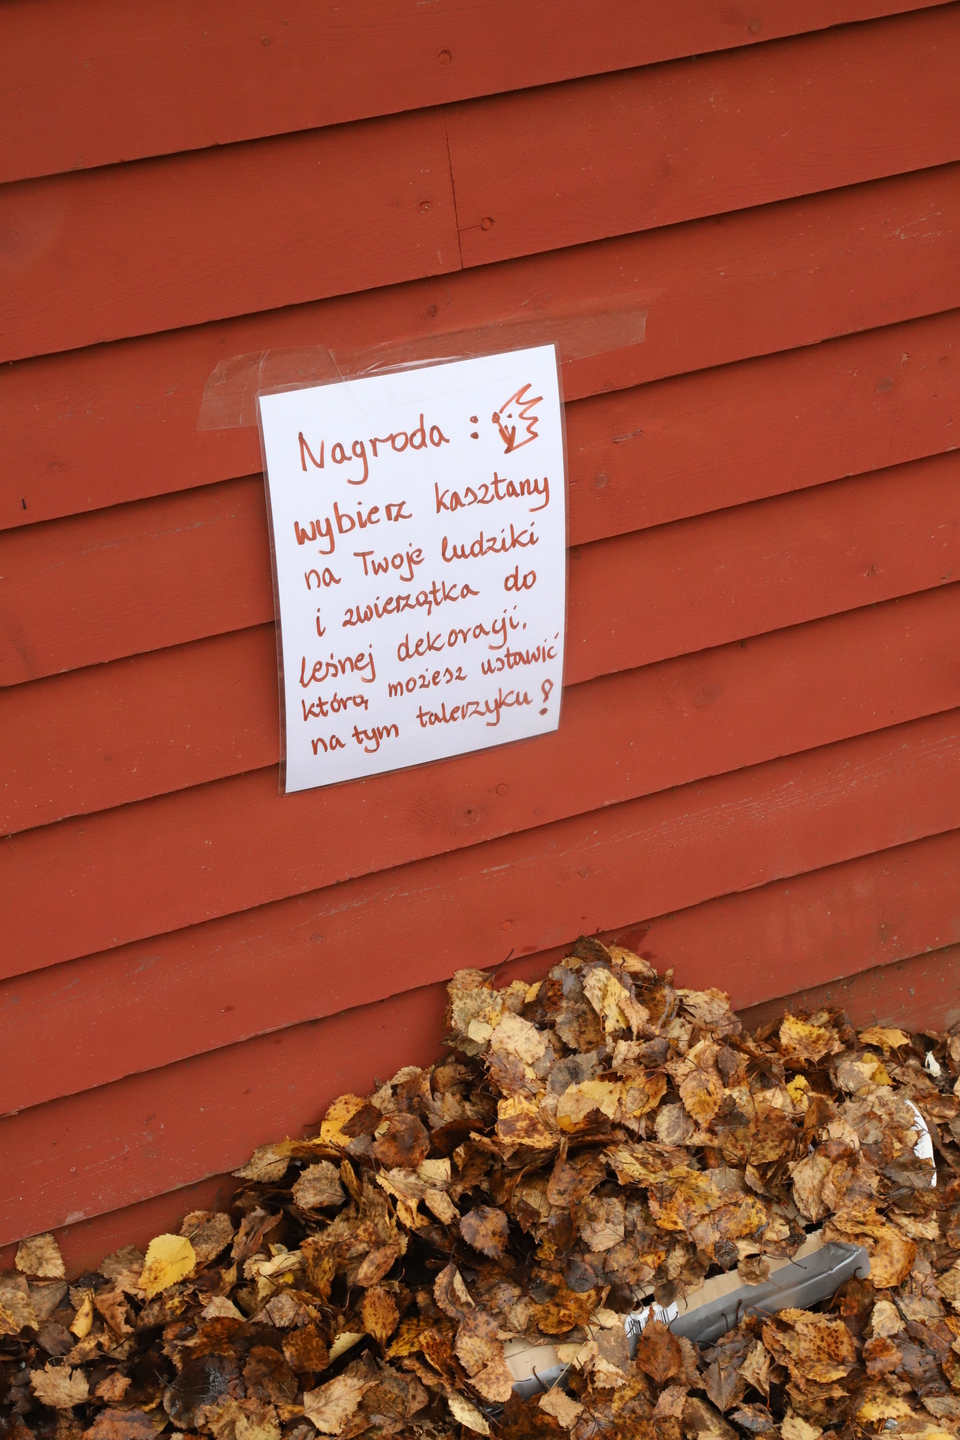 Nagroda :
wybierz kasztany
na Twoje ludziki
i zwierzątka do
leśnej dekoracji,
którą możesz ustawić
na tym talerzyku!